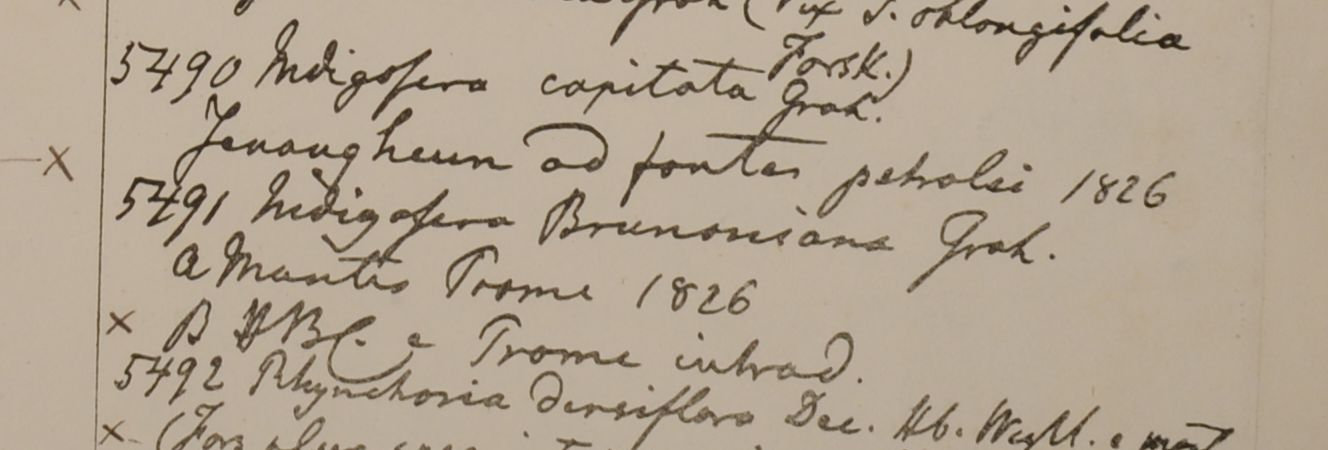 Grah (Vix I. oblongifolia
Forsk.)
5490 Indigofera capitata Grah.
Jenangheun ad fontes petrolei 1826
5491 Indigofera Brunoniana Grah.
a Montis Prome 1826
× B HBC. e Prome introd.
5492 Rhynchosia densiflora Dec. Hb. Wight.
× (Fors